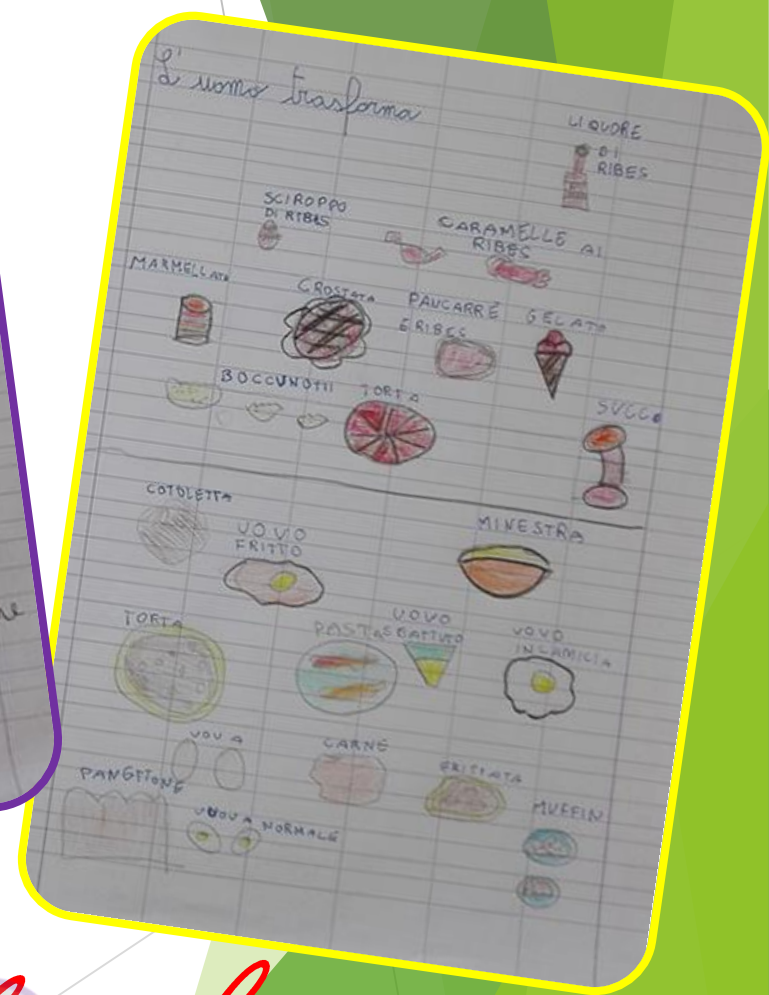 L'uomo trasforma
LIQUORE
DI
RIBES
SCIROPPO
DI RIBES
CARAMELLE AL
RIBES
MARMELLATA
CROSTATA
PANCARRÈ
E RIBES
GELATO
BOCCUNOTTI
TORTA
SUCCO
COTOLETTA
UOVO
FRITTO
MINESTRA
TORTA
PASTA
UOVO
SBATTUTO
UOVO
IN CAMICIA
UOVA
CARNE
FRITTATA
PANETTONE
UUOVA NORMALE
MUFFIN